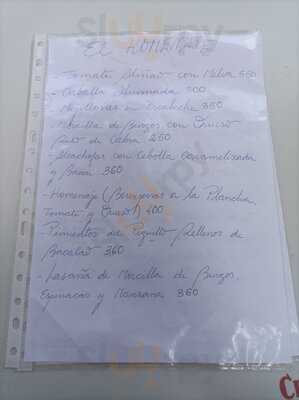 EL HOMENAJE
- Tomate Aliñao con Melva 650
- Caballa Ahumada 500
- Mejillones en Escabeche 350
- Morcilla de Burgos con Queso
Puro de Cabra 250
- Alcachofas con Cebolla Caramelizada
y Bacon 360
- Homenaje (Berenjenas a la Plancha,
Tomate y Queso) 400
- Pimientos del Piquillo Rellenos de
Bacalao 360
- Lasaña de Morcilla de Burgos,
Espinacas y Manzana 360